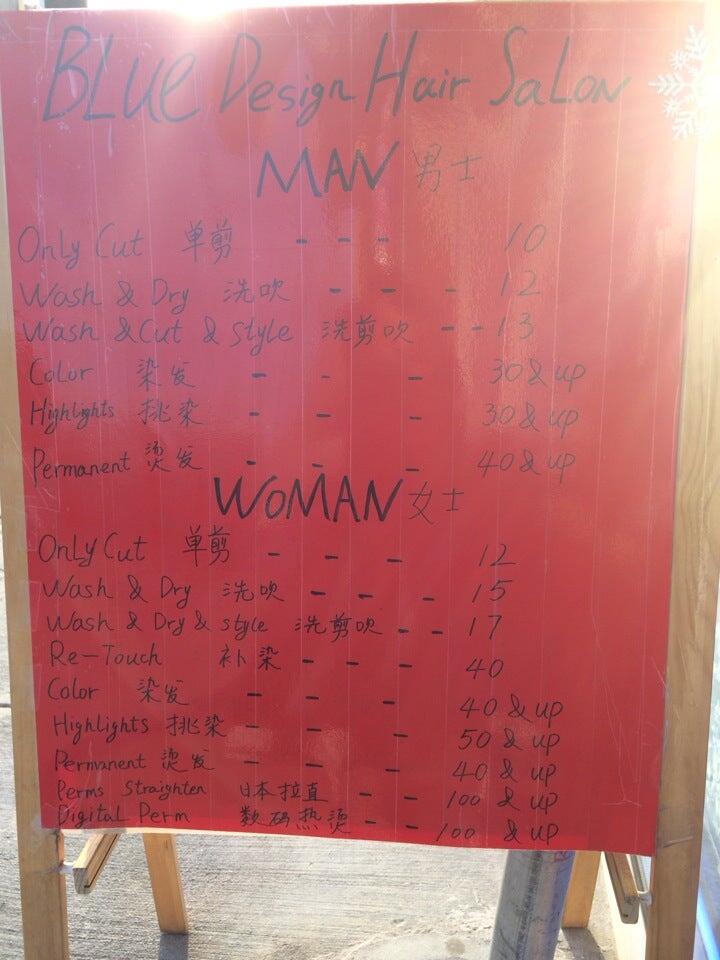 BLUE Design Hair SaLon
MAN 男士
Only Cut 单剪 - - - 10
Wash & Dry 洗吹 - - - 12
Wash & Cut & Style 洗剪吹 - - 13
Color 染发 - - - 30 & up
Highlights 挑染 - - - 30 & up
Permanent 烫发 - - - 40 & up
WOMAN 女士
Only Cut 单剪 - - - 12
Wash & Dry 洗吹 - - - 15
Wash & Dry & style 洗剪吹 - - 17
Re-Touch 补染 - - - 40
Color 染发 - - - 40 & up
Highlights 挑染 - - - 50 & up
Permanent 烫发 - - - 40 & up
Perms Straighten 日本拉直 - - 100 & up
Digital Perm 数码热烫 - - 100 & up